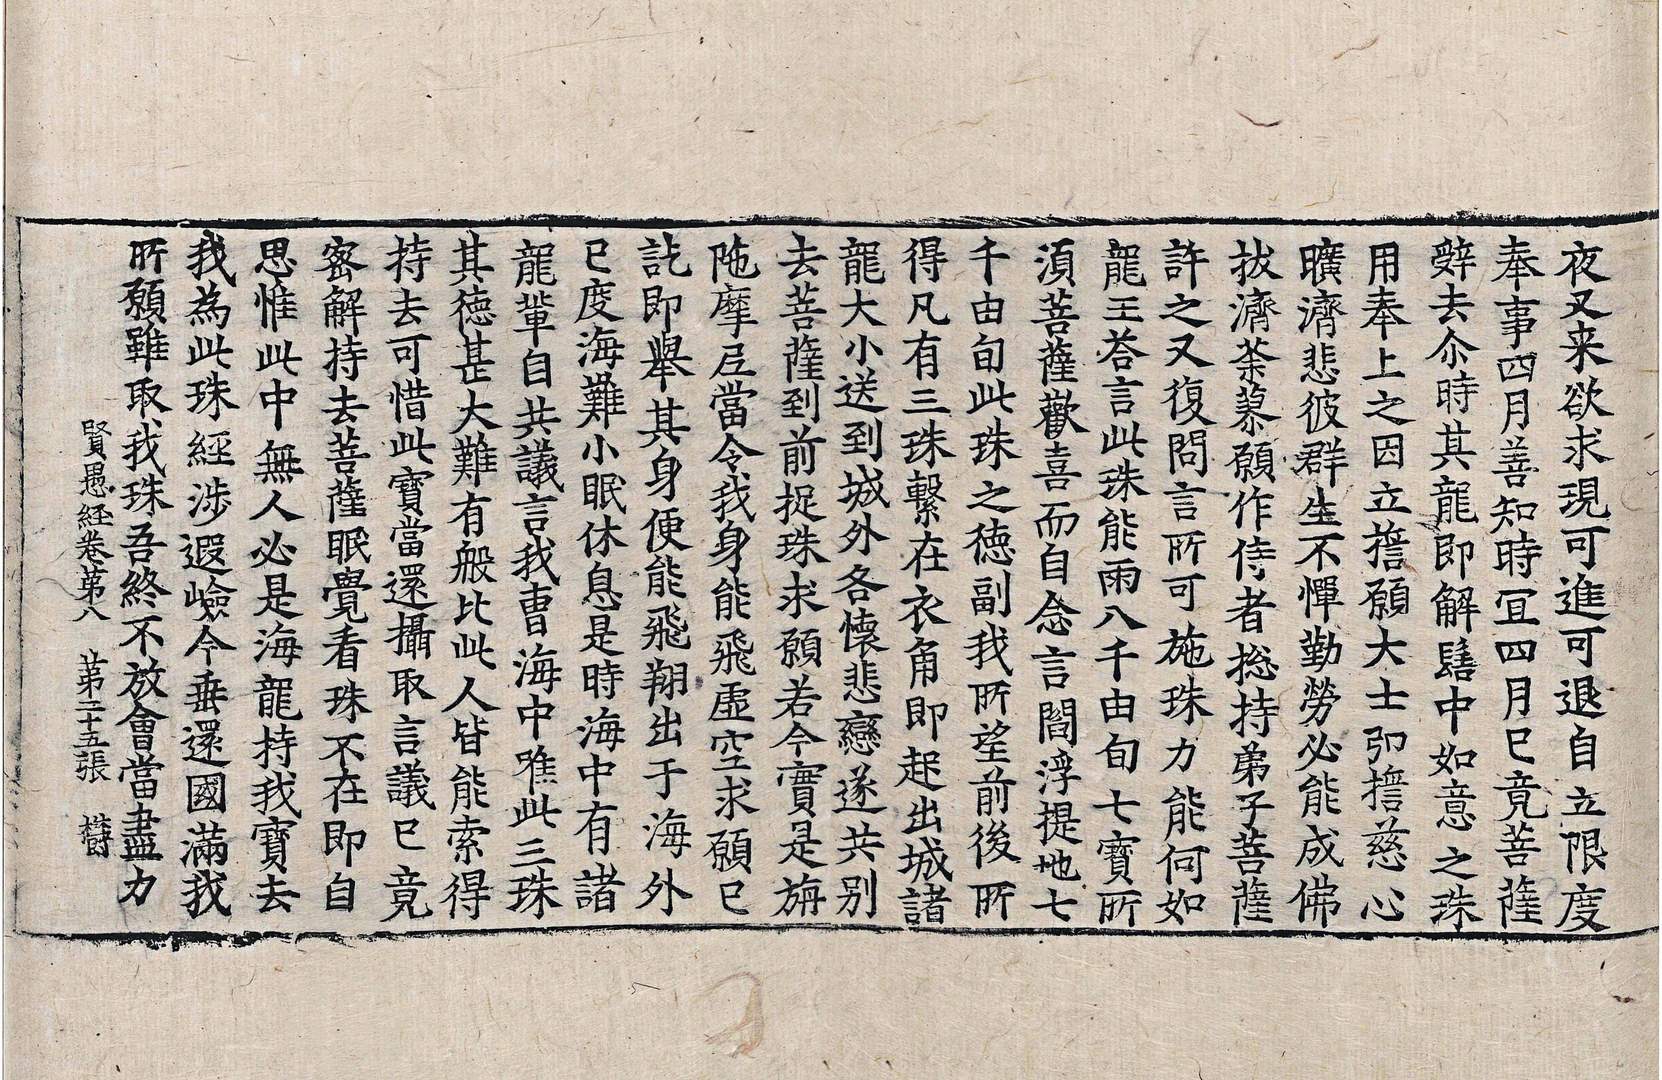 夜叉来欲求現可進可退自立限度
奉事四月善知時冝四月已竟菩薩
辤去尒時其龍即解髻中如意之珠
用奉上之因立擔願大士弘擔慈心
曠濟悲彼群生不憚勤勞必能成佛
拔濟荼蓼願作侍者捴持弟子菩薩
許之又復問言所可施珠力能何如
龍王荅言此珠能雨八千由旬七寶所
湏菩薩歡喜而自念言閻浮提地七
千由旬此珠之徳副我所望前後所
得凡有三珠繫在衣角即起出城諸
龍大小送到城外各懷悲戀遂共别
去菩薩到前捉珠求願若今實是旃
陁摩尼當令我身能飛虛空求願已
訖即舉其身便能飛翔出于海外
已度海難小眠休息是時海中有諸
龍輩自共議言我曹海中唯此三珠
其徳甚大難有般比此人皆能索得
持去可惜此寶當還攝取言議已竟
密解持去菩薩眠覺看珠不在即自
思惟此中無人必是海龍持我寶去
我為此珠經涉遐嶮今垂還國滿我
所願雖取我珠吾終不放會當盡力
賢愚経卷第八　第二十五張　欝